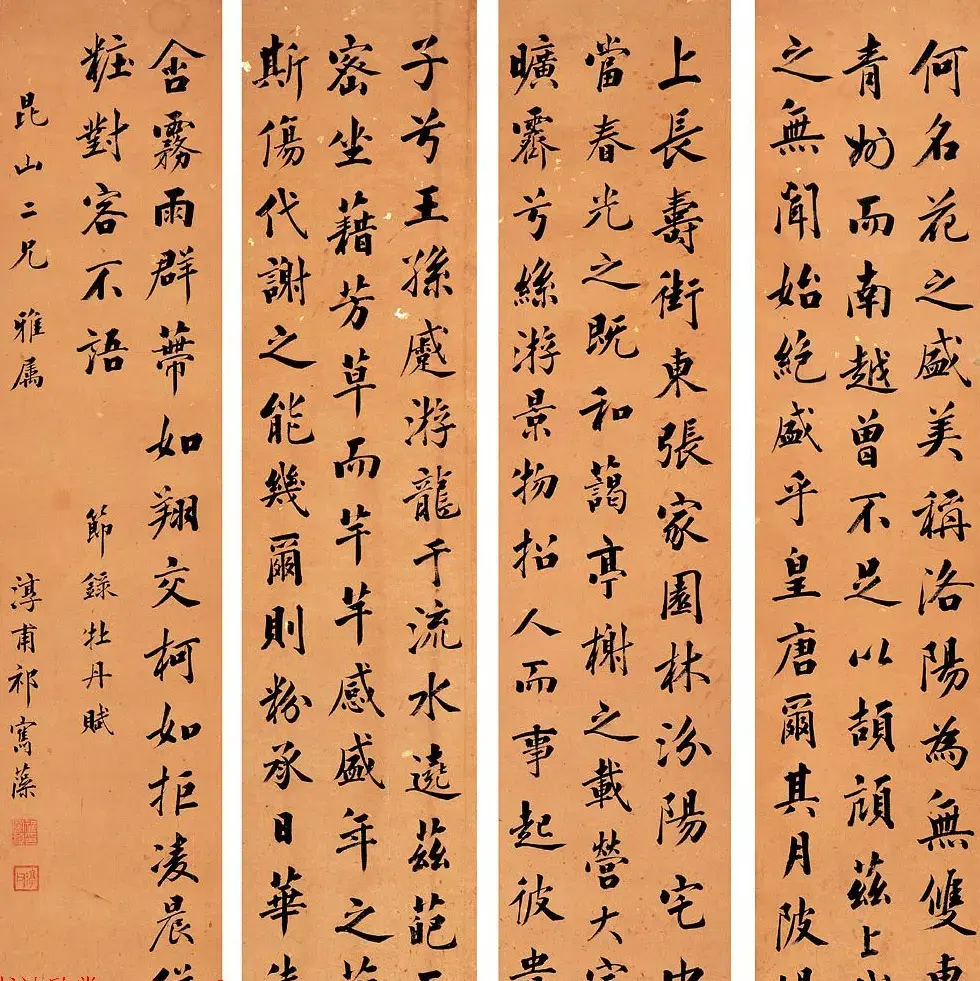 何名花之盛美稱洛陽為無雙東
青州而南越曾不足以頡頏茲上
之無聞始絕盛乎皇唐爾其月陂
上長壽街東張家園林汾陽宅中
當春光之既和藹亭榭之載營大
曠霽兮絲游景物招人而事起彼貴
子兮王孫蹙游龍于流水遶茲葩
密坐藉芳草而芊芊感盛年之
斯傷代謝之能幾爾則粉承日華
含霧雨群蔕如翔交柯如拒凌晨
粧對客不語 節錄牡丹賦
昆山二兄雅属 淳甫祁寯藻